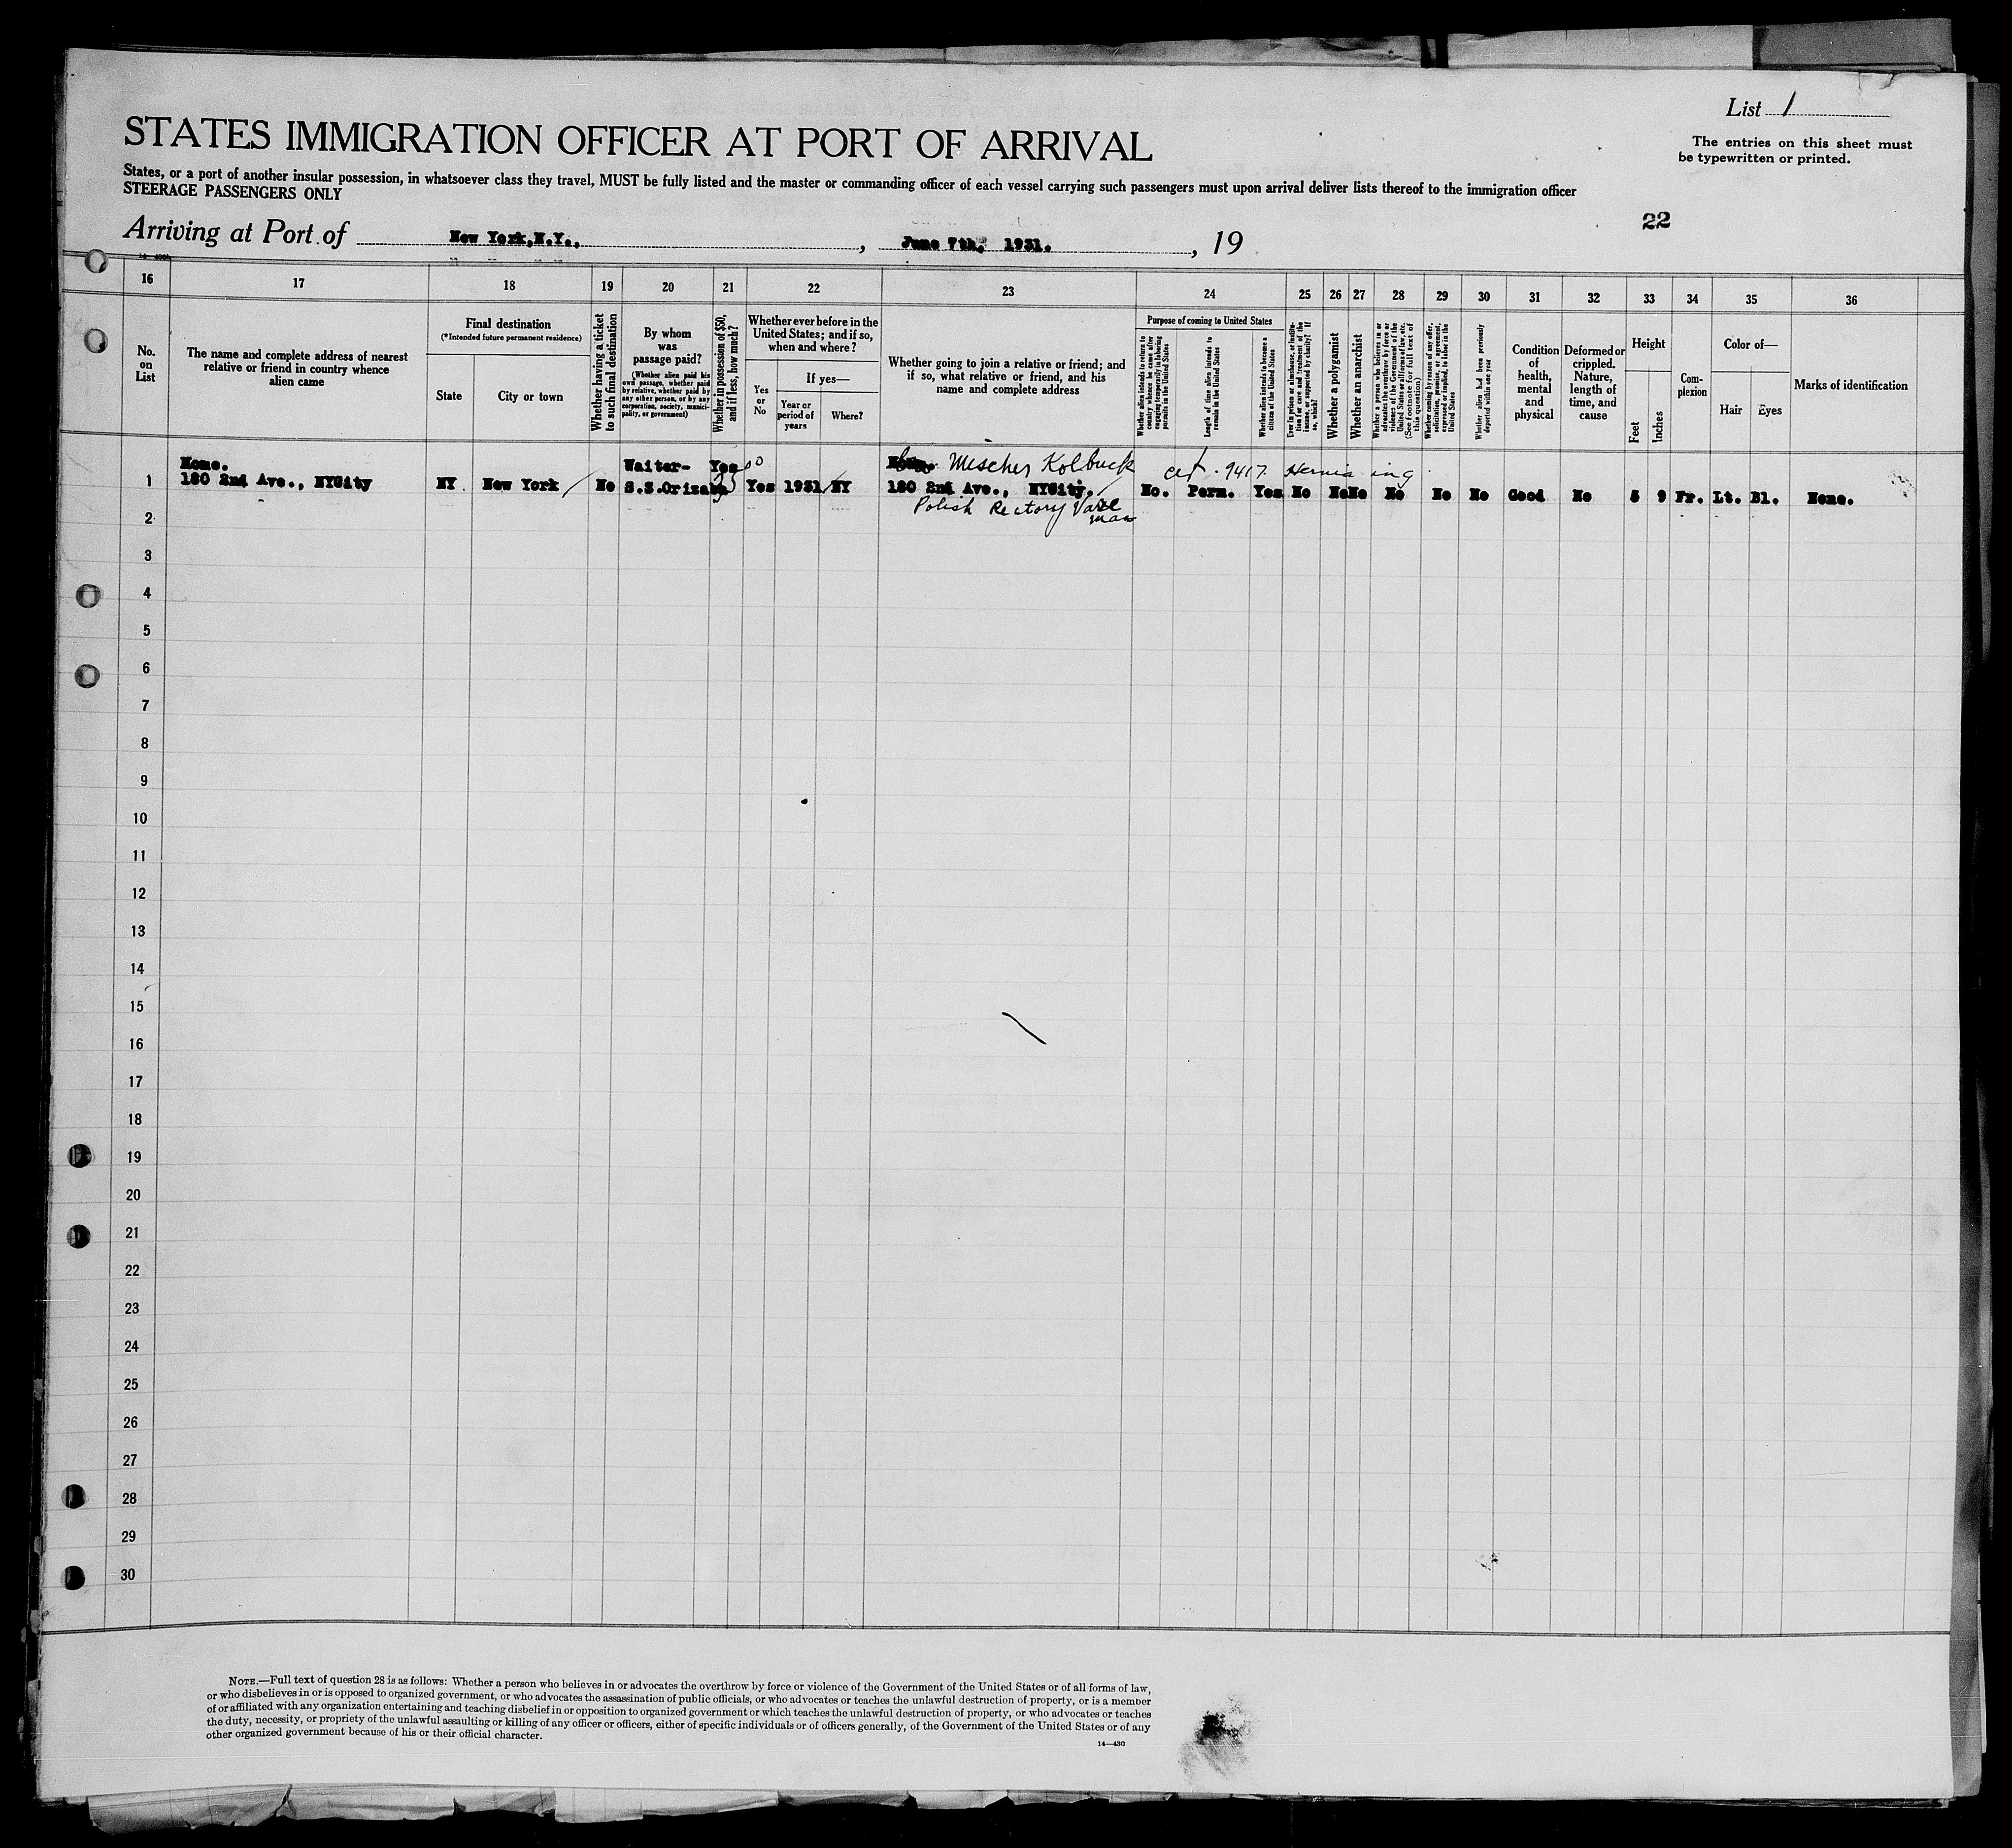 List 1
The entries on this sheet must
be typewritten or printed.
STATES IMMIGRATION OFFICER AT PORT OF ARRIVAL
States, or a port of another insular possession, in whatsoever class they travel, MUST be fully listed and the master or commanding officer of each vessel carrying such passengers must upon arrival deliver lists thereof to the immigration officer
STEERAGE PASSENGERS ONLY
22
Arriving at Port of New York, N.Y., , June 7th, 1931. , 19
16 17 18 19 20 21 22 23 24 25 26 27 28 29 30 31 32 33 34 35 36
No.
on
List
The name and complete address of nearest
relative or friend in country whence
alien came
Final destination
(*Intended future permanent residence)
State
City or town
Whether having a ticket
to such final destination
By whom
was
passage paid?
(Whether alien paid his
own passage, whether paid
by relative, whether paid by
any other person, or by any
corporation, society, munici-
pality, or government)
Whether in possession of $50,
and if less, how much?
Whether ever before in the
United States; and if so,
when and where?
Yes
or
No
If yes—
Year or
period of
years
Where?
Whether going to join a relative or friend; and
if so, what relative or friend, and his
name and complete address
Purpose of coming to United States
Whether alien intends to return to
country whence he came after
engaging temporarily in laboring
pursuits in the United States
Length of time alien intends to
remain in the United States
Whether alien intends to become a
citizen of the United States
Ever in prison or almshouse, or institu-
tion for care and treatment of the
insane, or supported by charity? If
so, which?
Whether a polygamist
Whether an anarchist
Whether a person who believes in or
advocates the overthrow by force or
violence of the Government of the
United States or all forms of law, etc.
(See footnote for full text of
this question)
Whether coming by reason of any offer,
solicitation, promise, or agreement,
expressed or implied, to labor in the
United States
Whether alien had been previously
deported within one year
Condition
of
health,
mental
and
physical
Deformed or
crippled.
Nature,
length of
time, and
cause
Height
Feet
Inches
Com-
plexion
Color of—
Hair
Eyes
Marks of identification
None. Waiter- Yes Mescher Kolbuck cet. 9417 Hernia ing
1 180 2nd Ave., NYCity NY New York No S.S.Orizaba 35 Yes 1931 NY 180 2nd Ave., NYCity. No. Perm. Yes No No No No No No Good No 5 9 Fr. Lt. Bl. None.
Polish Rectory
2
3
4
5
6
7
8
9
10
11
12
13
14
15
16
17
18
19
20
21
22
23
24
25
26
27
28
29
30
NOTE.—Full text of question 28 is as follows: Whether a person who believes in or advocates the overthrow by force or violence of the Government of the United States or of all forms of law,
or who disbelieves in or is opposed to organized government, or who advocates the assassination of public officials, or who advocates or teaches the unlawful destruction of property, or is a member
of or affiliated with any organization entertaining and teaching disbelief in or opposition to organized government or which teaches the unlawful destruction of property, or who advocates or teaches
the duty, necessity, or propriety of the unlawful assaulting or killing of any officer or officers, either of specific individuals or of officers generally, of the Government of the United States or of any
other organized government because of his or their official character.
14—430